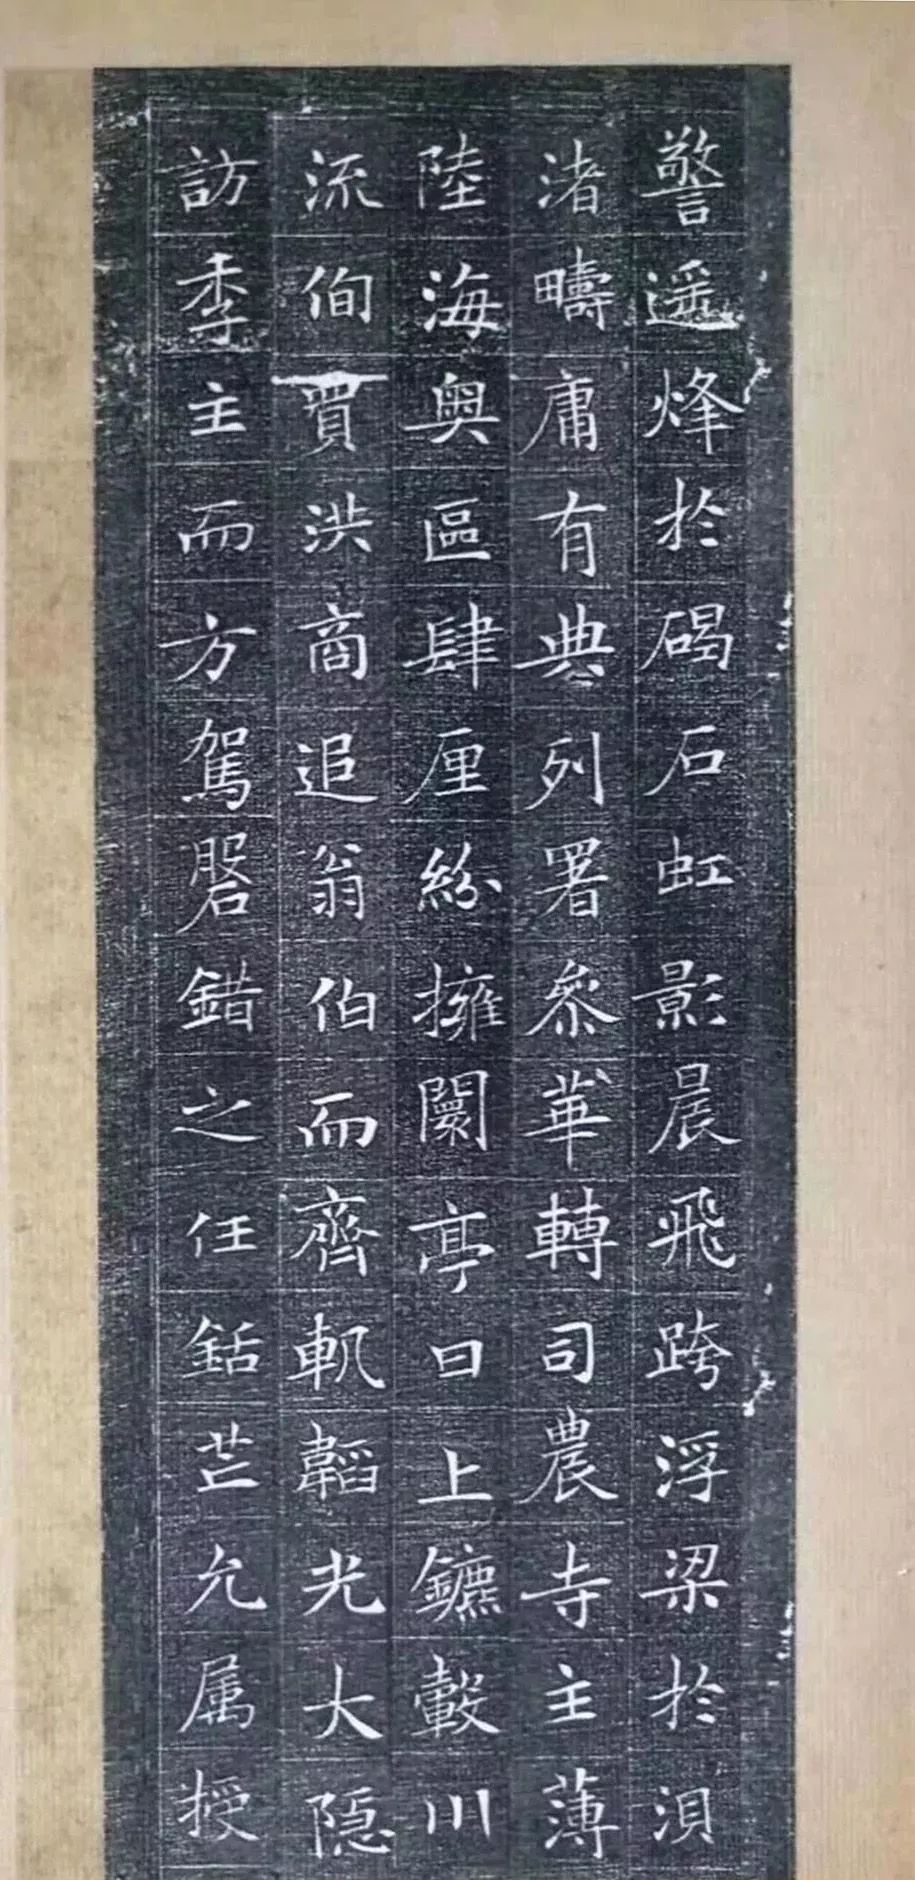 警遥烽於碣石虹影晨飛跨浮梁於浿
渚疇庸有典列署叅華轉司農寺主薄
陸海奥區肆厘紛擁闤亭日上鑣轂川
流佝買洪商追翁伯而齊軏韜光大隠
訪季主而方駕磐錯之任銛芒允属授